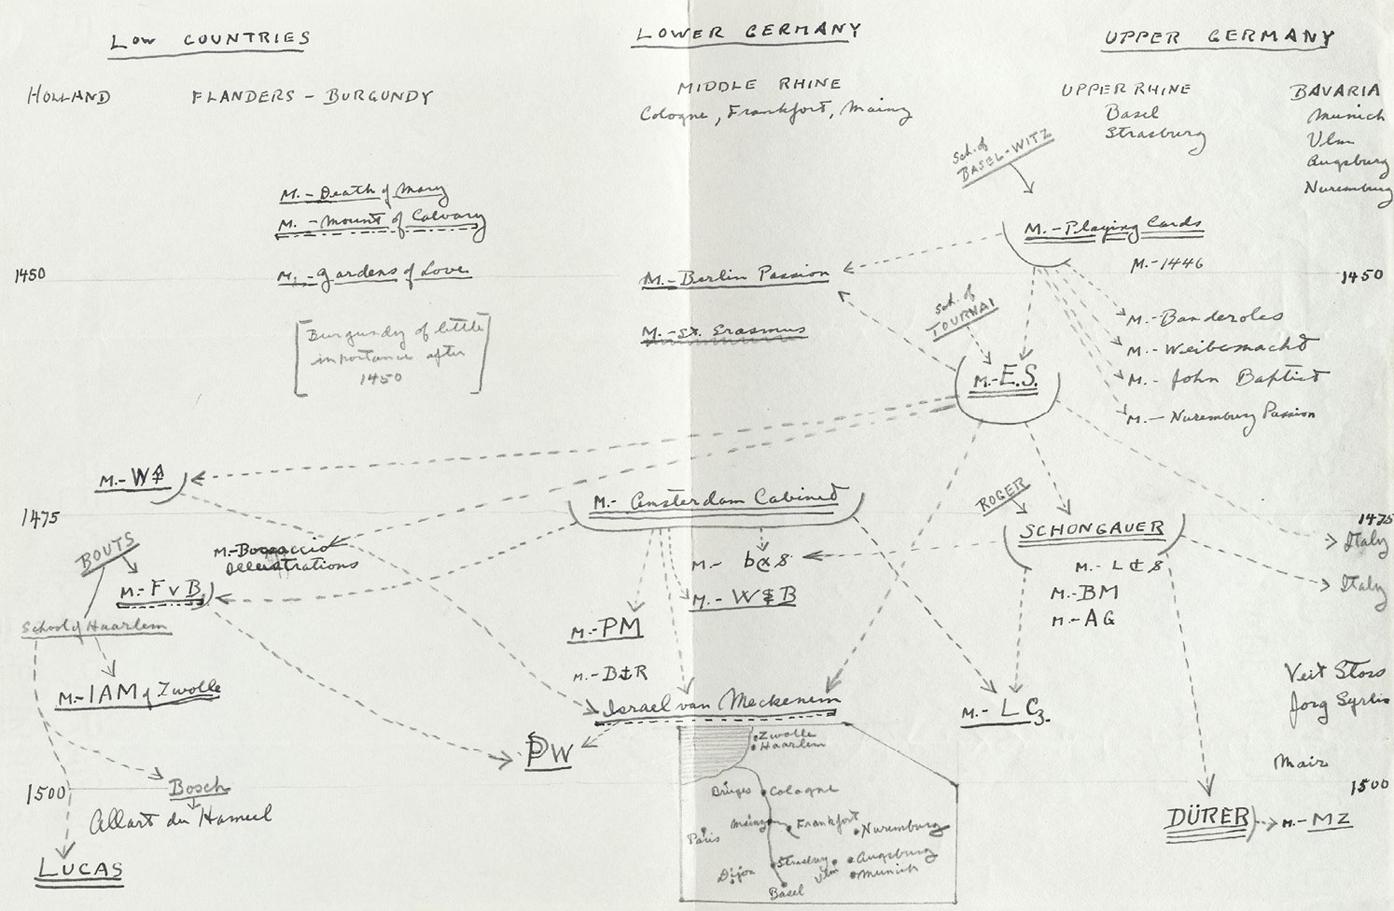 LOW COUNTRIES
LOWER GERMANY
UPPER GERMANY
HOLLAND
FLANDERS – BURGUNDY
MIDDLE RHINE
Cologne, Frankfort, Mainz
UPPER RHINE
Basel
Strasburg
BAVARIA
Munich
Ulm
Augsburg
Nuremburg
Sch. of
BASEL-WITZ
M.-Death of Mary
M.-Mount of Calvary
M.-Playing Cards
M.-1446
1450
M.-Gardens of Love
M.-Berlin Passion
1450
Sch. of
TOURNAI
M.-Banderoles
[Burgundy of little
importance after
1450]
M.-St. Erasmus
M.-Weibermacht
M.-E.S.
M.- John Baptist
M.- Nuremburg Passion
M.-W
M.-Amsterdam Cabinet
ROGER
1475
1475
SCHONGAUER
Italy
BOUTS
M.-Boccaccio
Illustrations
M.- b x 8
M.- L ¢ S
Italy
M.-F V B
M.-W B
M.-BM
M.-AG
School of Haarlem
M.-PM
M.-B R
M.-IAM of Zwolle
Israel van Meckenem
M.-LCz.
Veit Stoss
Jorg Syrlin
PW
Zwolle
Haarlem
Mair
Bosch
1500
1500
Allart du Hameel
Bruges
Cologne
Mainz
Frankfort
Nuremburg
Paris
DÜRER
M.-MZ
Strasburg
Augsburg
Ulm
Munich
Dijon
Basel
LUCAS